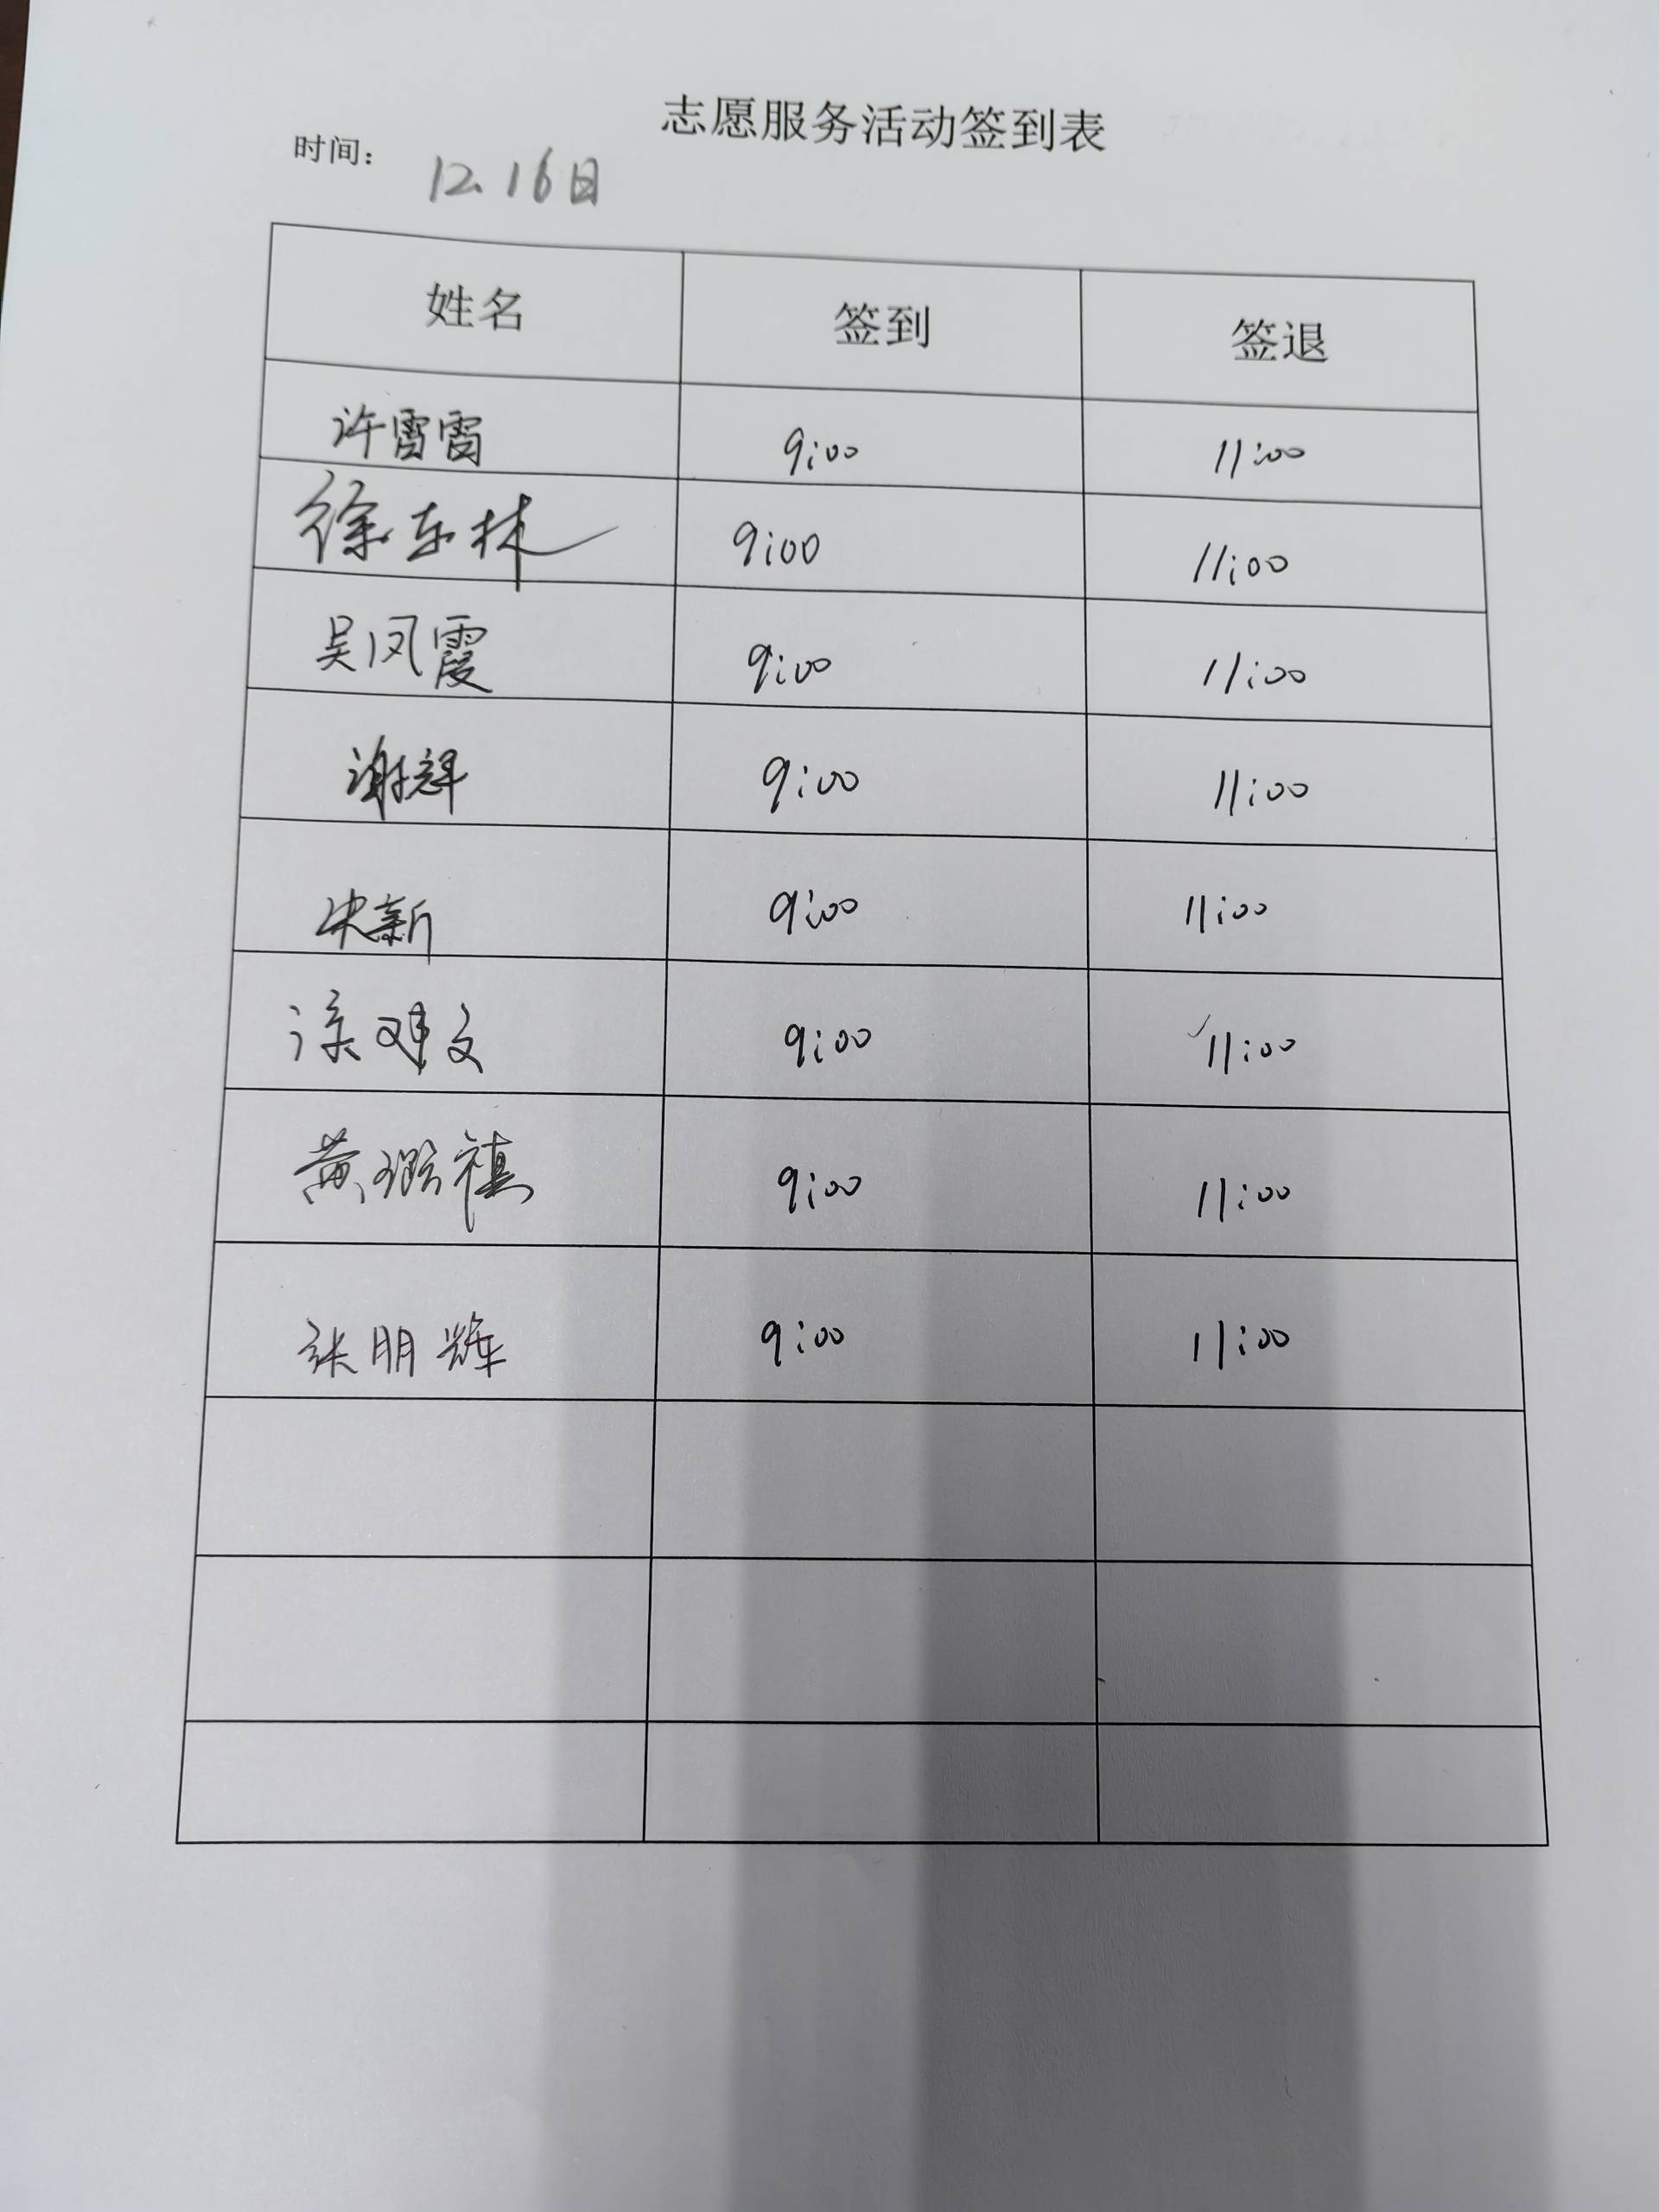 志愿服务活动签到表
时间： 12.16日
姓名 签到 签退
许雷雷 9:00 11:00
徐东林 9:00 11:00
吴凤霞 9:00 11:00
谢辉 9:00 11:00
新 9:00 11:00
涂 文 9:00 11:00
黄 禛 9:00 11:00
张朋辉 9:00 11:00